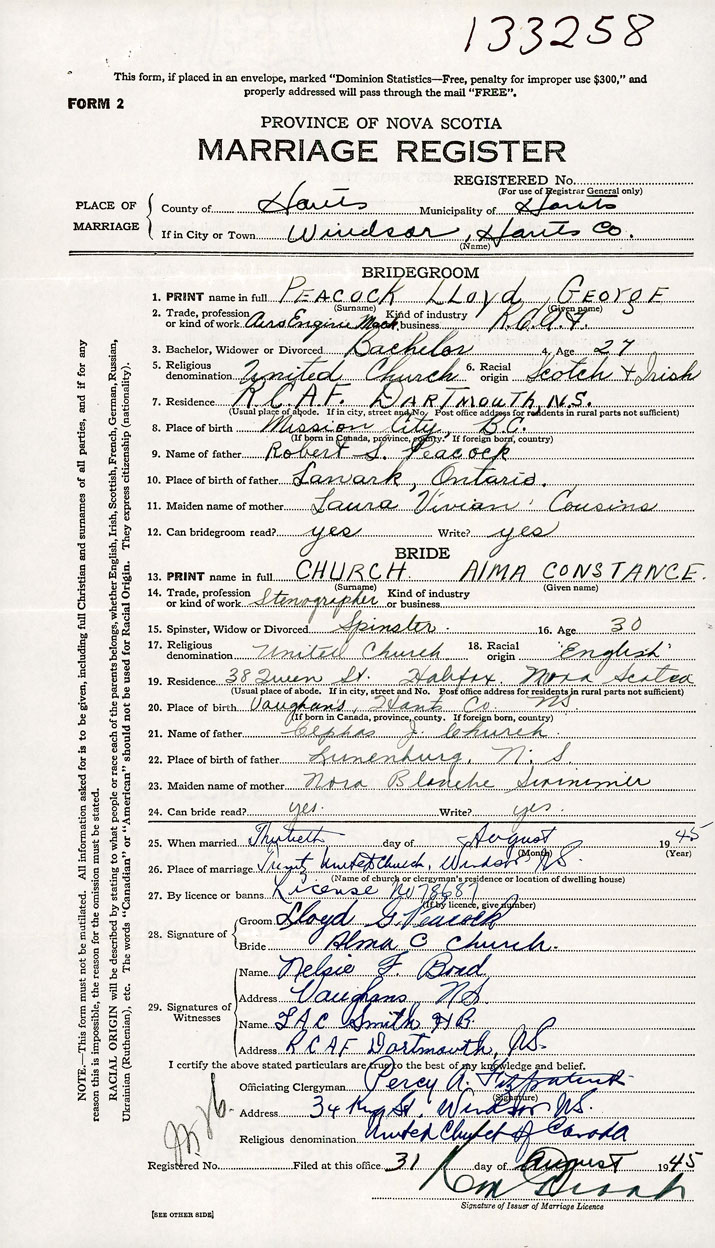 133258
This form, if placed in an envelope, marked "Dominion Statistics—Free, penalty for improper use $300," and
properly addressed will pass through the mail "FREE".
FORM 2
PROVINCE OF NOVA SCOTIA
MARRIAGE REGISTER
REGISTERED No.
(For use of Registrar General only)
PLACE OF MARRIAGE
County of Hants Municipality of Hants
If in City or Town Windsor, Hants Co.
(Name)
BRIDEGROOM
1. PRINT name in full PEACOCK LLOYD GEORGE
(Surname) (Given name)
2. Trade, profession or kind of work Aero Engine Mech. Kind of industry business R.C.A.F.
3. Bachelor, Widower or Divorced Bachelor 4. Age 27
5. Religious denomination United Church 6. Racial origin Scotch & Irish
7. Residence R.C.A.F. DARTMOUTH N.S.
(Usual place of abode. If in city, street and No. Post office address for residents in rural parts not sufficient)
8. Place of birth Mission City, B.C.
(If born in Canada, province, county. If foreign born, country)
9. Name of father Robert S. Peacock
10. Place of birth of father Lanark, Ontario.
11. Maiden name of mother Laura Vivian Cousins
12. Can bridegroom read? yes Write? yes
BRIDE
13. PRINT name in full CHURCH AlMA CONSTANCE.
(Surname) (Given name)
14. Trade, profession or kind of work Stenographer Kind of industry or business
15. Spinster, Widow or Divorced Spinster. 16. Age 30
17. Religious denomination United Church 18. Racial origin 'English'
19. Residence 38 Queen St. Halifax, Nova Scotia
(Usual place of abode. If in city, street and No. Post office address for residents in rural parts not sufficient)
20. Place of birth Vaughan's, Hants Co. NS
(If born in Canada, province, county. If foreign born, country)
21. Name of father Cephas J. Church.
22. Place of birth of father Lunenburg, N.S.
23. Maiden name of mother Nora Blanche
24. Can bride read? yes. Write? yes.
25. When married Thirtieth day of August 1945
(Month) (Year)
26. Place of marriage Trinity United Church, Windsor N.S.
(Name of church or clergyman's residence or location of dwelling house)
27. By licence or banns License No 78687
(If by licence, give number)
28. Signature of
Groom Lloyd G. Peacock
Bride Alma C Church.
29. Signatures of Witnesses
Name Nelsie F. Bond
Address Vaughans NS
Name LAC Smith H.B.
Address RCAF Dartmouth, NS.
I certify the above stated particulars are true to the best of my knowledge and belief.
Officiating Clergyman Percy A. Fitzpatrick
(Signature)
Address 34 King St. Windsor NS.
Religious denomination United Church of Canada
Registered No. Filed at this office 31 day of August 1945
Signature of Issuer of Marriage Licence
[SEE OTHER SIDE]
NOTE.—This form must not be mutilated. All information asked for is to be given, including full Christian and surnames of all parties, and if for any
reason this is impossible, the reason for the omission must be stated.
RACIAL ORIGIN will be described by stating to what people or race each of the parents belongs, whether English, Irish, Scottish, French, German, Russian,
Ukrainian (Ruthenian), etc. The words "Canadian" or "American" should not be used for Racial Origin. They express citizenship (nationality).